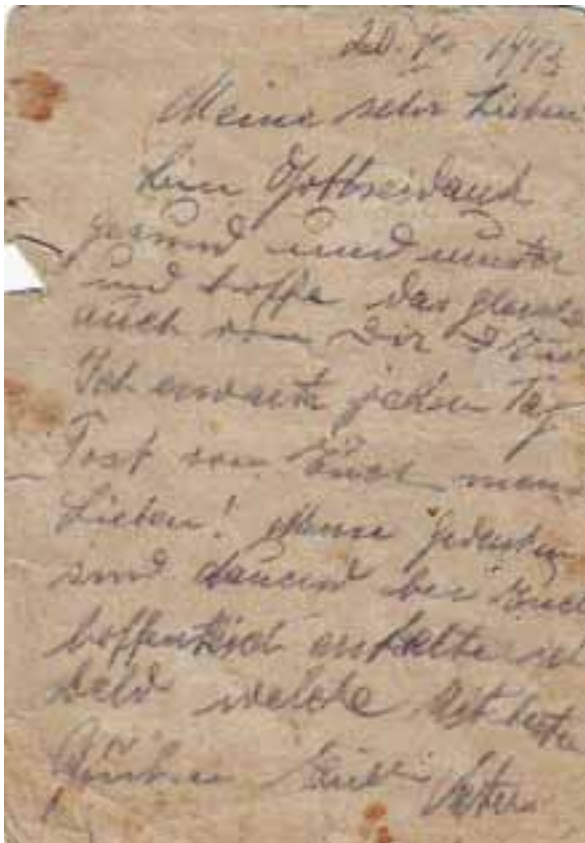 20. 1943
Meine sehr Lieben
bin Gottseidank
gesund und munter
und hoffe das gleiche
auch von Dir
Ich erwarte jeden Tag
Post von Euch mein
Lieben! Meine Gedanken
sind dauernd bei Euch
hoffentlich erhalte ich
bald welche
Vater